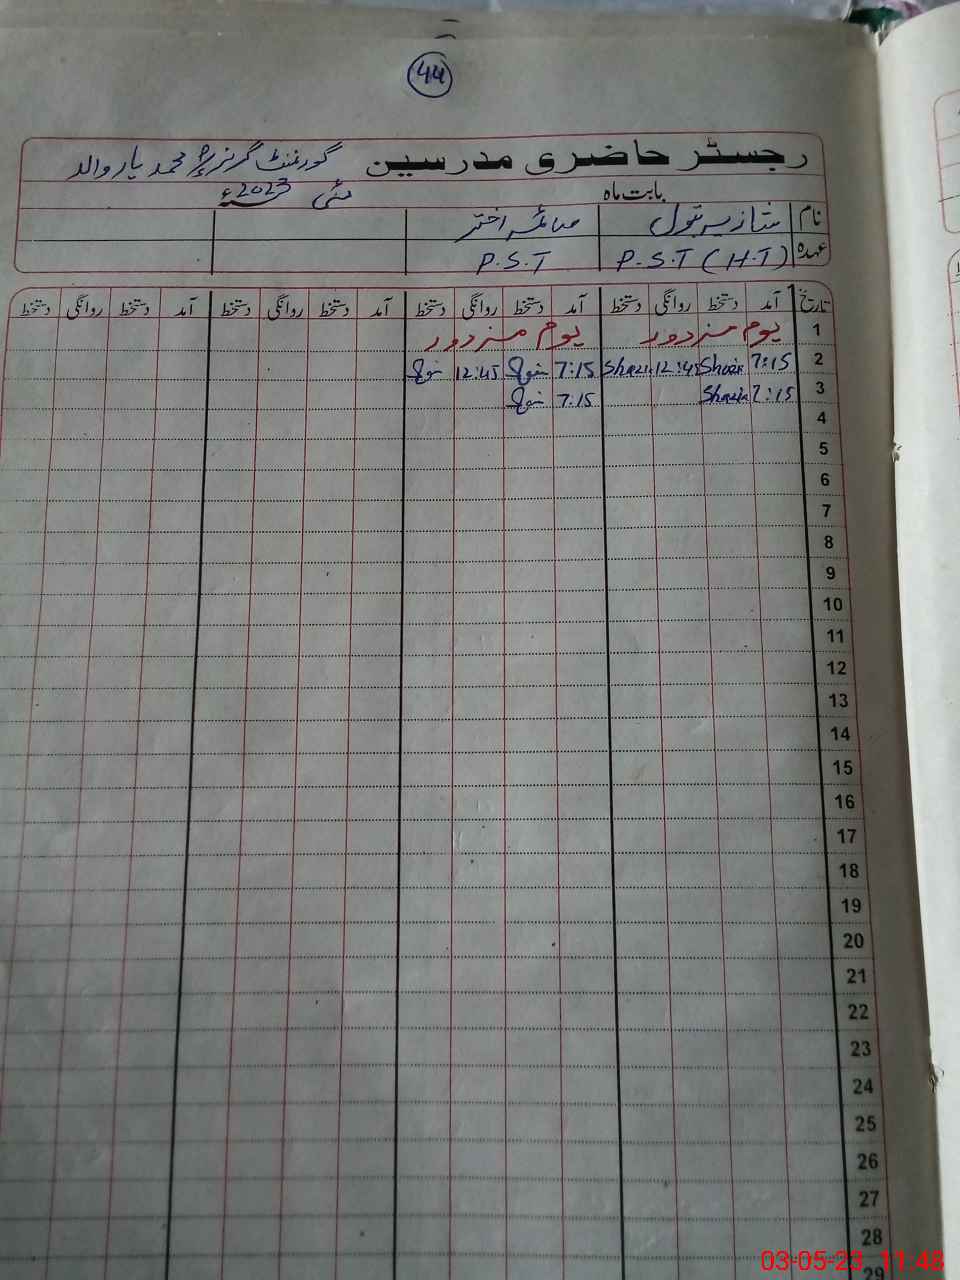 44
رجسٹر حاضری مدرسین گورنمنٹ گرلز محمد یار والد
بابت ماہ مئی 2023ء
نام شازیہ بتول صائمہ اختر
عہدہ P.S.T (H.T) P.S.T
تاریخ آمد دستخط روانگی دستخط آمد دستخط روانگی دستخط آمد دستخط روانگی دستخط آمد دستخط روانگی دستخط
1 یوم مزدور یوم مزدور
2 7:15 Shazia 12:45 Shazia 7:15 12:45
3 7:15 Shazia 7:15
4
5
6
7
8
9
10
11
12
13
14
15
16
17
18
19
20
21
22
23
24
25
26
27
28
29
03-05-23 11:48